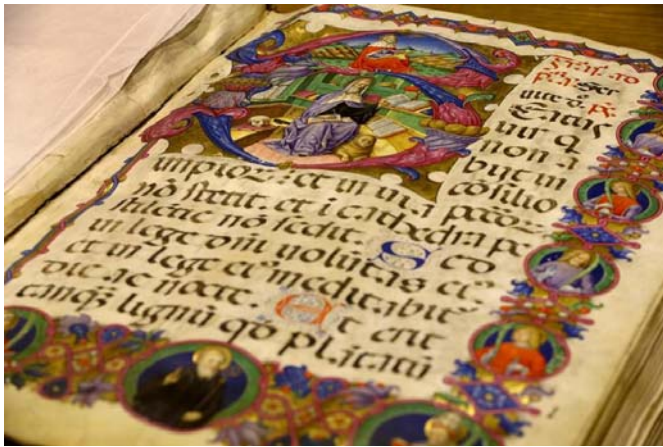 Ser
uite
Eatus
uir q
non a
bijt in
cōsilio
impioꝝ : et in uia
nō stetit. et i cathedra pe
stilētie nō sedit. Sed
in lege dn̄i uolūtas ei⁹
et in lege ei⁹ meditabit᷑
die ac nocte. Et erit
tanqꝫ lignū qd̄ plātatū